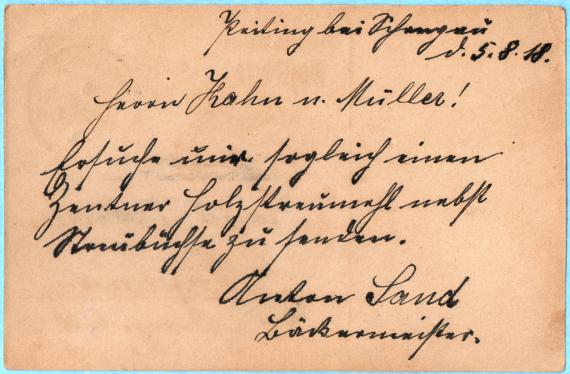 Peiting bei Schongau
d. 5.8.18.
Herrn Kahn u. Müller!
Ersuche mir sogleich einen
Zentner Holzstreumehl nebst
Streubüchse zu senden.
Anton Sand
Bäckermeister.